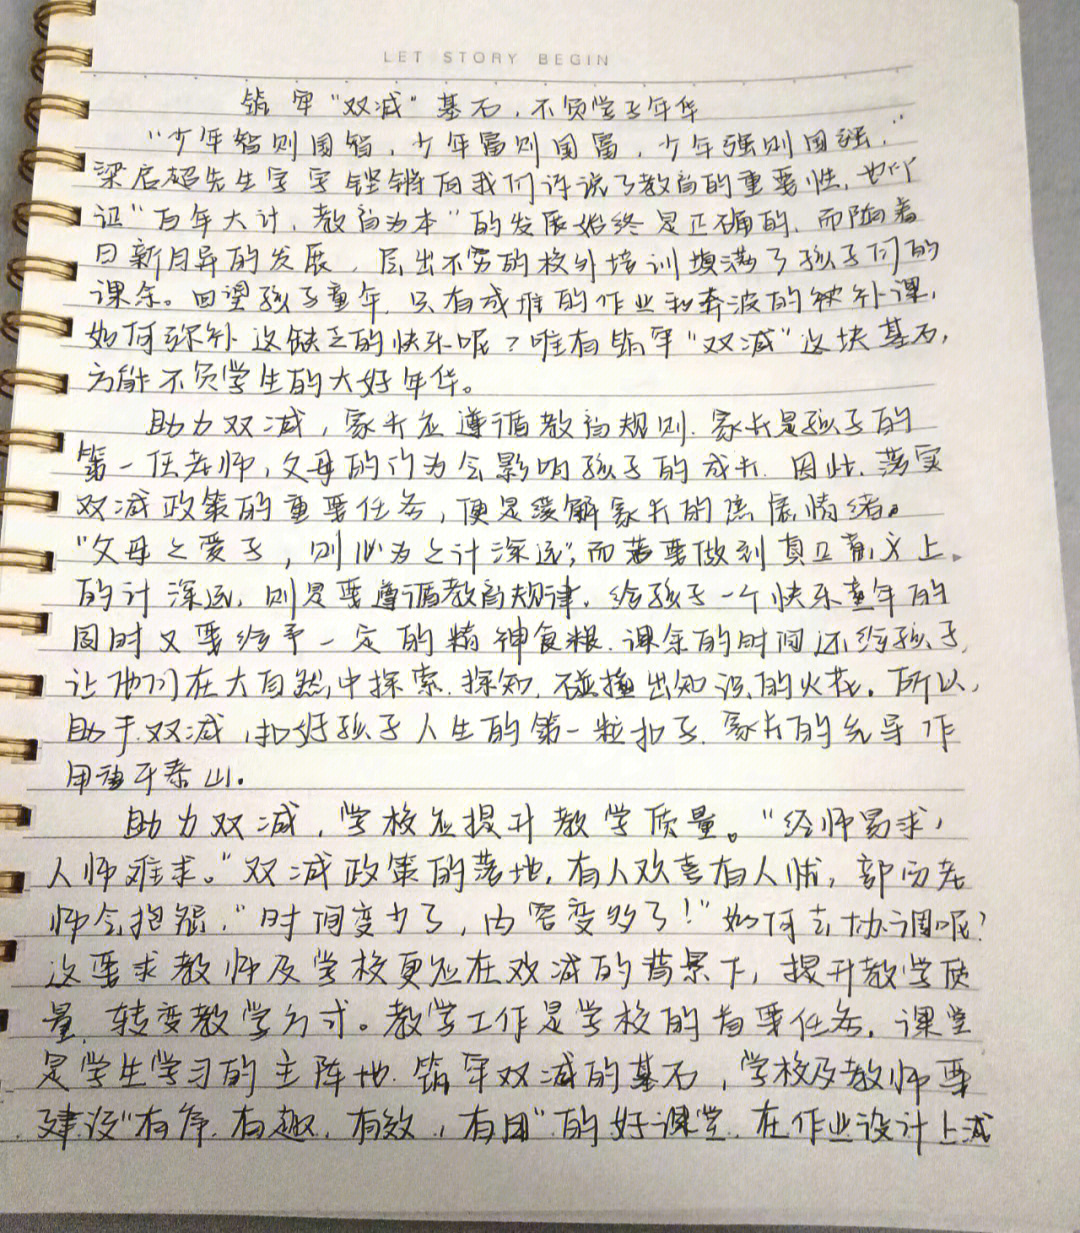 LET STORY BEGIN
筑牢"双减"基石，不负学子年华
"少年智则国智，少年富则国富，少年强则国强，"
梁启超先生字字铿锵向我们诉说了教育的重要性，也
证"百年大计，教育为本"的发展始终是正确的，而随着
日新月异的发展，层出不穷的校外培训填满了孩子们的
课余。回望孩子童年，只有成堆的作业和奔波的被补课，
如何弥补这缺乏的快乐呢？唯有筑牢"双减"这块基石，
方能不负学生的大好年华。
助力双减，家长应遵循教育规则.家长是孩子的
第一任老师，父母的行为会影响孩子的成长.因此.落实
双减政策的重要任务，便是缓解家长的焦虑情绪。
"父母之爱子，则必为之计深远"，而若要做到真正意义上
的计深远，则是要遵循教育规律，给孩子一个快乐童年的
同时又要给予一定的精神食粮.课余的时间还给孩子，
让他们在大自然中探索.探知，碰撞出知识的火花。所以，
助手双减，扣好孩子人生的第一粒扣子.家长的先导作
用重于泰山。
助力双减，学校应提升教学质量。"经师易求，
人师难求。"双减政策的落地，有人欢喜有人忧，部分老
师会抱怨，"时间变少了，内容变多了！"如何去协调呢？
这要求教师及学校更应在双减的背景下，提升教学质
量，转变教学方式。教学工作是学校的首要任务，课堂
是学生学习的主阵地.筑牢双减的基石，学校及教师要
建设"有序.有趣，有效，有用"的好课堂.在作业设计上减